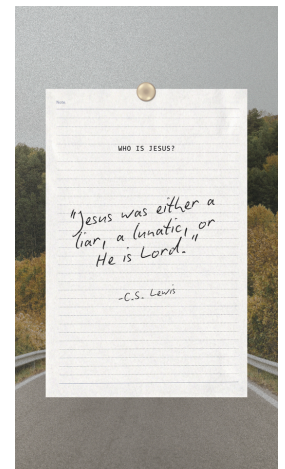 Notes
WHO IS JESUS?
"Jesus was either a
liar, a lunatic, or
He is Lord."
-C.S. Lewis